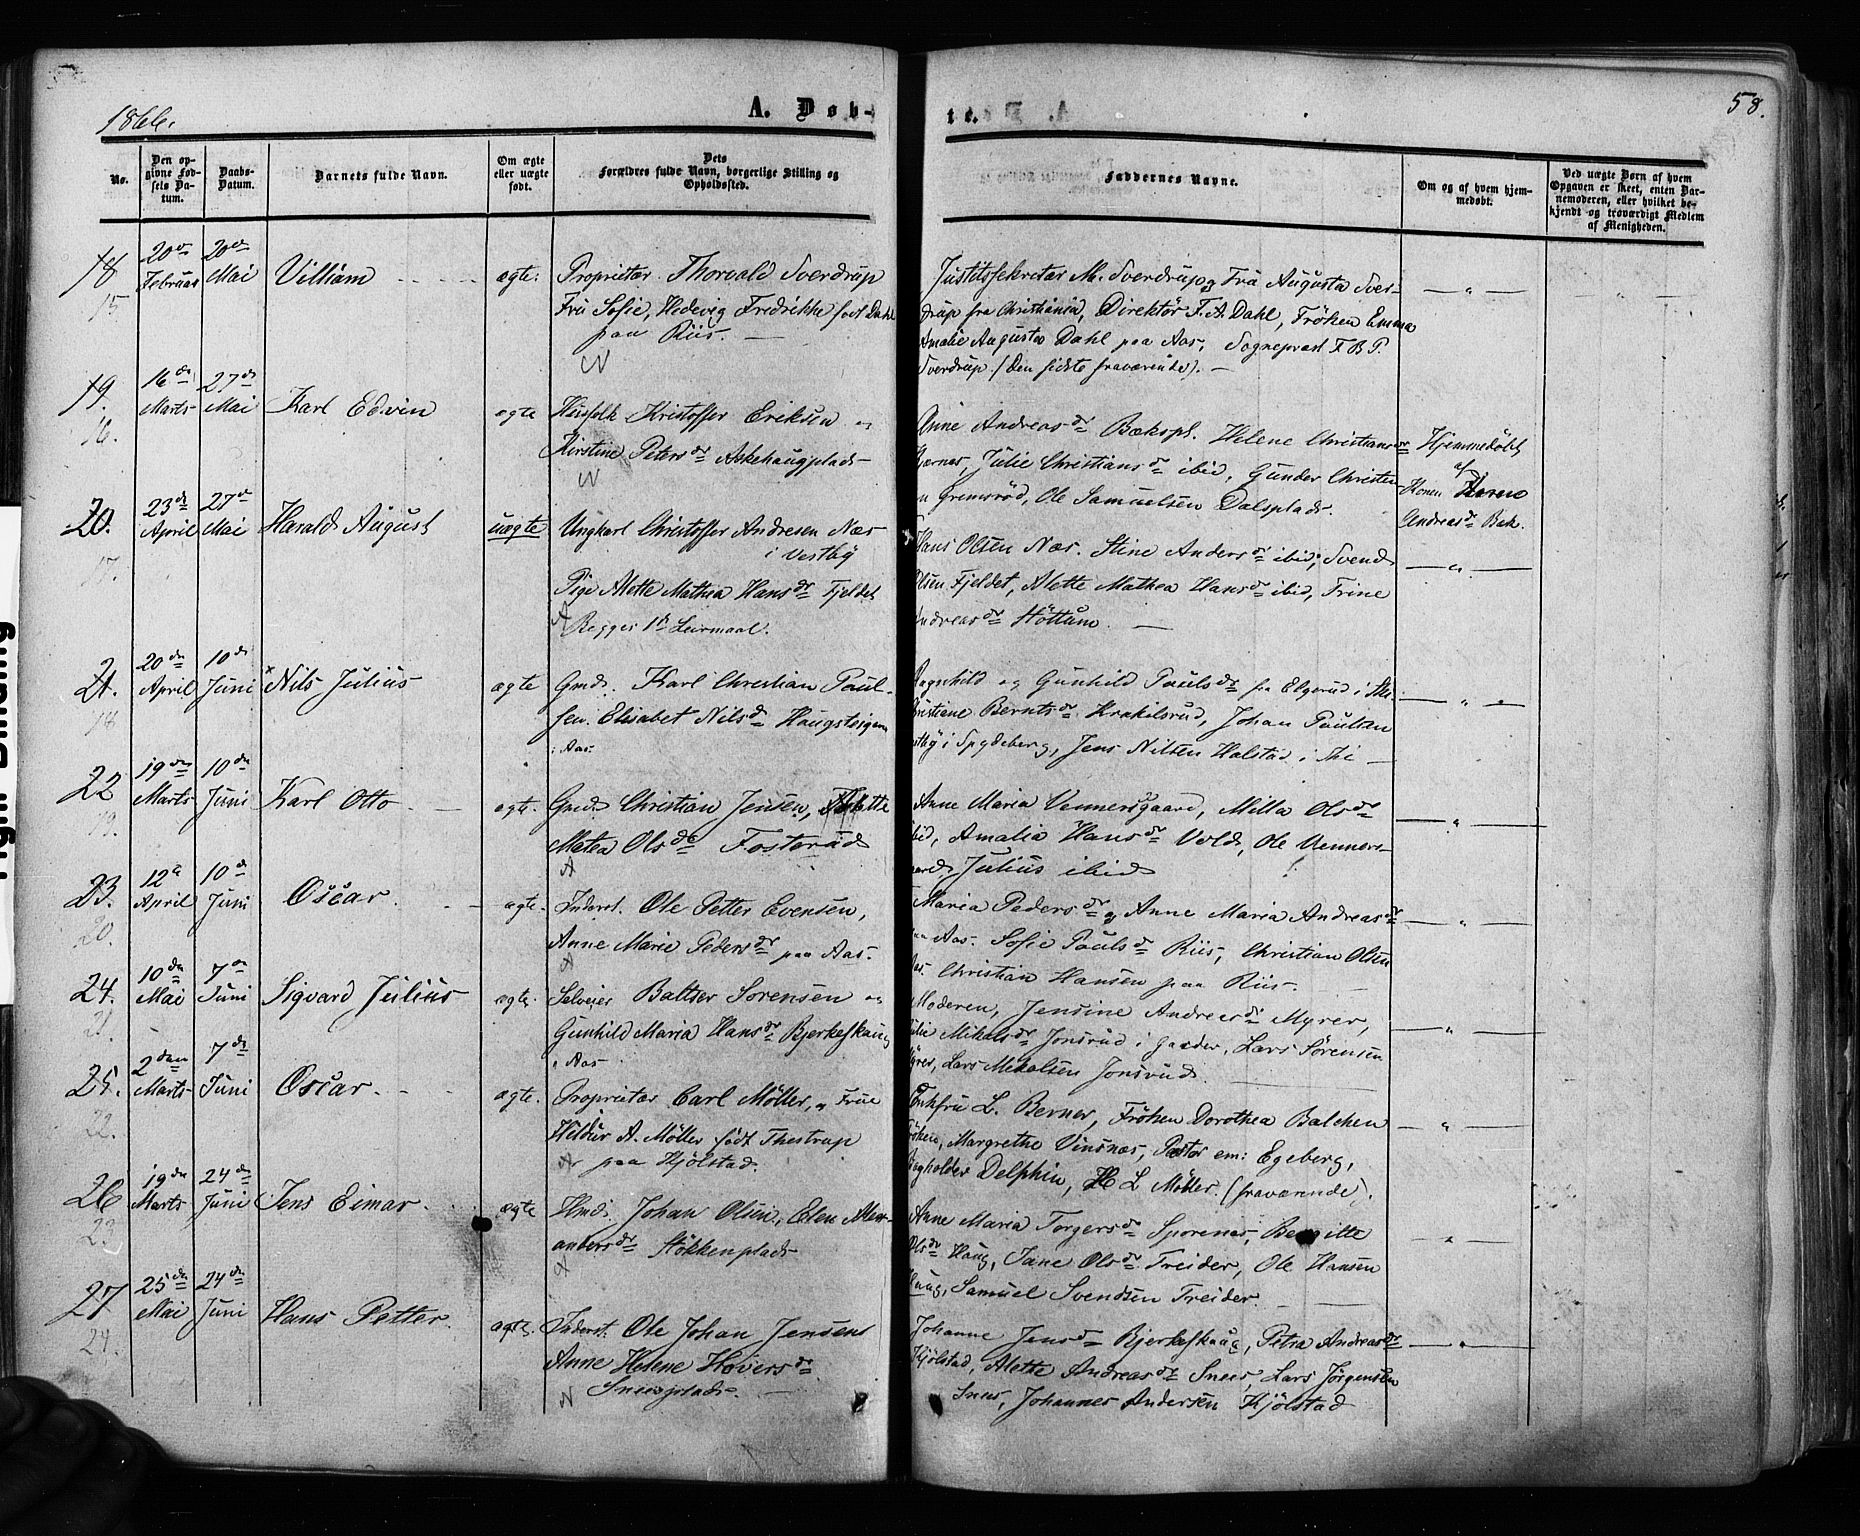 1866.
A. Døb-
te.
58.
No.
Den op-
givne Fød-
sels Da-
tum.
Daabs-
Datum.
Barnets fulde Navn.
Om ægte
eller uægte
født.
Dets
Forældres fulde Navn, borgerlige Stilling og
Opholdssted.
Faddernes Navne.
Om og af hvem hjem-
medøbt.
Ved uægte Børn af hvem
Opgaven er skeet, enten Bar-
nemoderen, eller hvilket be-
kjendt og troværdigt Medlem
af Menigheden.
18
15
20de
Februar
20de
Mai
Villiam
ægte:
Proprietær Thorvald Sverdrup
Fru Sofie, Hedevig Fredrikke født Dahl
paa Riis.
N
Justitssekretær M. Sverdrup og Fru Augusta Sver-
drup fra Christiania, Direktör F. A. Dahl, Fröken Emma
Amalie Augusta Dahl paa Aas, Sogneprest F. B. P.
Sverdrup. (den sidste fraværende).
19.
16.
16de
Marts
27de
Mai
Karl Edvin
ægte
Husfolk Kristoffer Eriksen og
Kirstine Petersdr Askehaugplads
N
Anne Andreasdr Bækspl. Helene Christiansdr
Kærnes, Julie Christiansdr ibid, Gunder Christen-
n Gremsröd, Ole Samuelsen Dalsplads.
Hjemmedöbt
af
Konen Karen
Andreasdr Bæk.
20.
17.
23de
April
27de
Mai
Harald August
uægte
Ungkarl Christoffer Andresen Næs
i Vestby
Pige Alette Mathea Hansdr Fjeldet
Begges 1ste Leirmaal.
Hans Olsen Næs. Stine Andersdr ibid, Svend
Olsen Fjeldet, Alette Mathea Hansdr ibid, Trine
Andreasdr Höttum.
21.
18
20de
April
10de
Juni
Nils Julius
ægte
Gmd. Karl Christian Paul-
sen. Elisabet Nilsdr Haugsteigen
i Aas
Ragnhild og Gunhild Paulsdr fra Elgerud i Ski
Kristiane Berntsdr Krakilsrud, Johan Paulsen
stby i Spydeberg, Jens Nilsen Halstad i Ski
22
19.
19de
Marts
10de
Juni
Karl Otto
ægte.
Gmd. Christian Jensen, Alette
Matea Olsdr Fosterud
A
Anne Maria Vennersgaard, Milla Olsdr
ibid, Amalia Hansdr Vold, Ole Venners-
gaard, Julius ibid
23.
20.
12te
April
10de
Juni
Oscar
ægte.
Inderst. Ole Petter Evensen,
Anne Marie Pedersdr paa Aas.
A
Maria Pedersdr og Anne Maria Andreasdr
paa Aas. Sofie Paulsdr Riis, Christian Olsen
Aas. Christian Hansen paa Riis.
24.
21.
10de
Mai
7de
Juni
Sigvard Julius
ægte.
Selveier Baltser Sorensen og
Gunhild Maria Hansdr Bjerkeskaug
i Aas
Moderen, Jensine Andreasdr Myrer,
Julie Mikalsdr Jonsrud i Gaarder, Lars Sörensen
Myrer, Lars Mekalsen Jonsrud.
25.
22.
2den
Marts
7de
Juni
Oscar
ægte.
Proprietær Carl Möller, og Frue
Hildur A. Möller født Thestrup
paa Kjölstad.
Enkfru L. Berner, Fröken Dorothea Balchen
Fröken, Margrethe Vinsnæs, Pastor em: Egeberg,
Bogholder Delphin, H L Möller. (fraværende).
26
23
19de
Marts
24de
Juni
Jens Eimar
ægte
Hmd. Johan Olsen, Elen Men-
andersdr Stökkenplads
Anne Maria Torgersdr Sporenes, Bergitte
Olsdr Haug, Jane Olsdr Treider, Ole Hansen
Haug, Samuel Svendsen Treider.
27
24.
25de
Mai
24de
Juni
Hans Petter
ægte.
Inderst. Ole Johan Jensens
Anne Helene Hoversdr
Sneesplads.
N
Johanne Jensdr Bjerkeskaug, Petra Andreasdr
Kjölstad, Alette Andreasdr Snees, Lars Jörgensen
Snees, Johannes Andersen Kjölstad